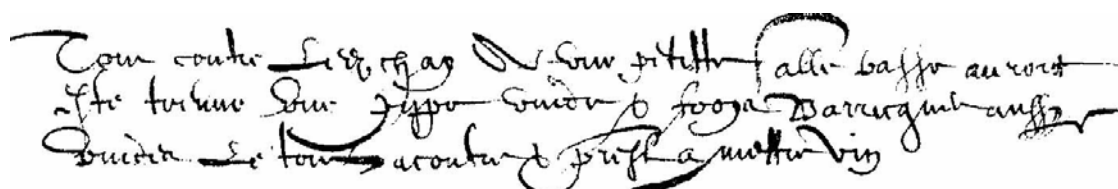 Tout contre Led chay une petitte salle basse auroit
Este trouue Une pippe vuide & Barricques aussy
vuides Le tout acoutre & prest a mettre vin